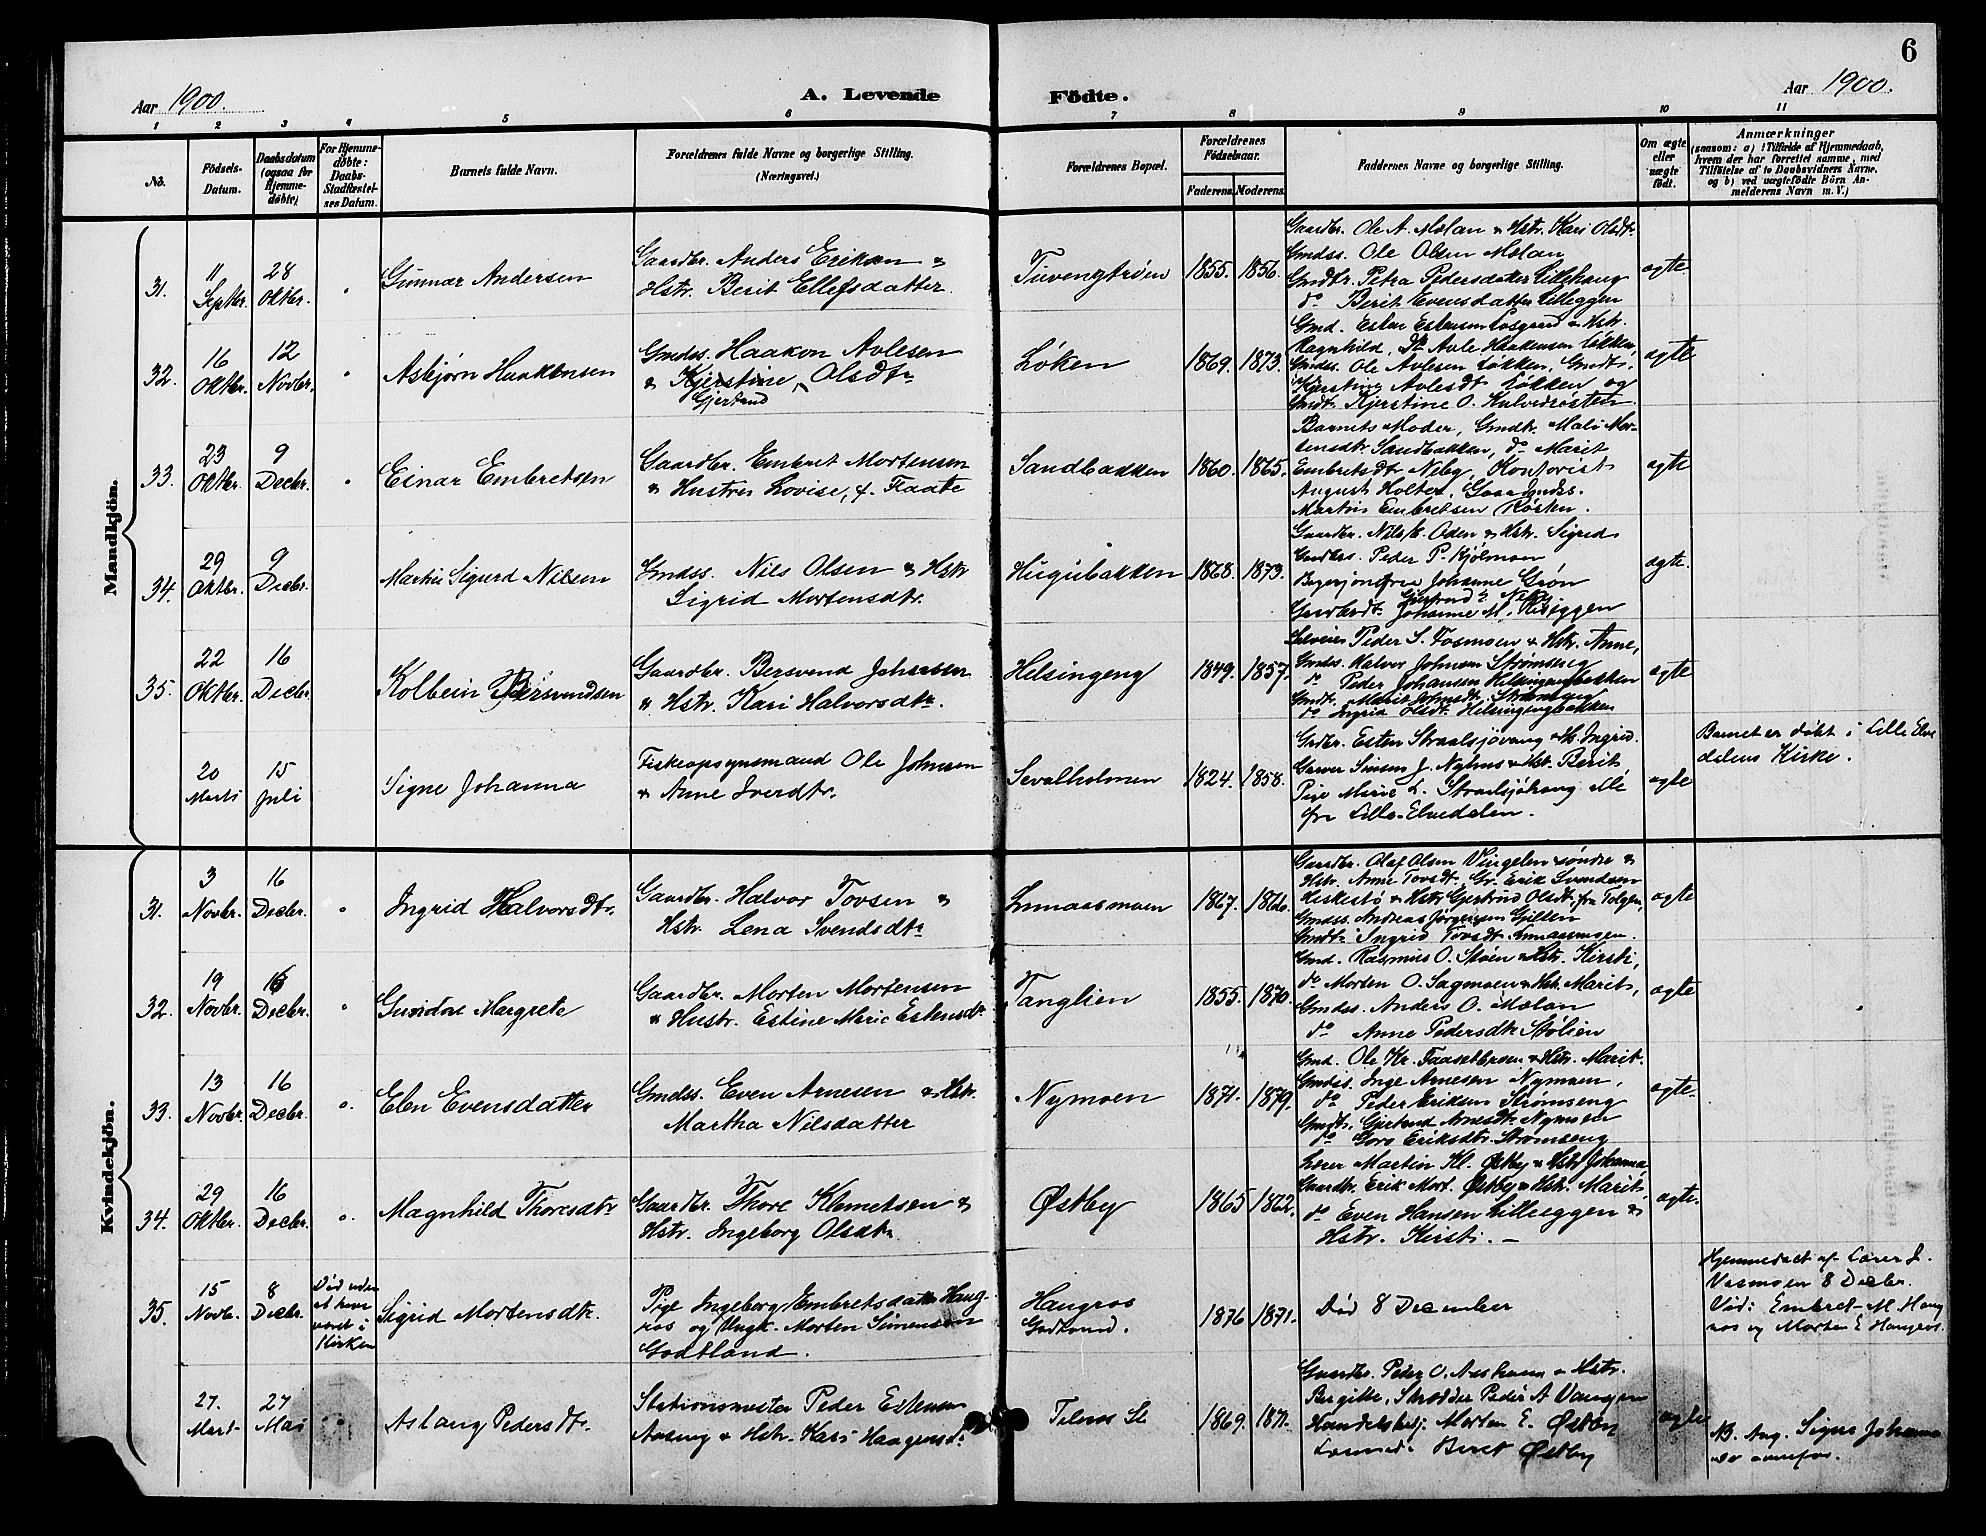 6
Aar 1900. A. Levende Födte. Aar 1900.
1 2 3 4 5 6 7 8 9 10 11
No. Födsels-Datum. Daabsdatum (ogsaa for Hjemmedöbte) For Hjemmedöbte: Daabs-Stadfæstelses Datum. Barnets fulde Navn. Forældrenes fulde Navne og borgerlige Stilling. (Næringsvei.) Forældrenes Bopæl. Forældrenes Födselsaar. Faderens. Moderens. Faddernes Navne og borgerlige Stilling. Om ægte eller uægte födt. Anmærkninger (saasom: a) i Tilfælde af Hjemmedaab, hvem der har forrettet samme, med Tilföielse af to Daabsvidners Navne, og b) ved uægtefödte Börn Anmelderens Navn m. V.)
Mandkjön.
31. 11 Septbr. 28 Oktbr. " Gunnar Andersen
Gaardbr. Anders Eriksen &
Hstr. Berit Ellefsdatter
Tuvengtrøen 1855. 1856.
Gaardbr. Ole A. Molan & Hstr. Kari Olsdtr
Gmdss. Ole Olsen Molan
Gmdtr. Petra Pedersdatter Lillehaug
do Berit Evensdatter Lilleggen
ægte
32. 16 Oktbr. 12 Novbr. " Asbjørn Haakensen
Gmdss. Haakon Avlesen
& Kjerstine, Olsdtr
Gjertrud
Løken 1869. 1873.
Gmd. Esten Estensen Losgaard & Hstr.
Ragnhild, Avle Haakensen Løkken,
Gmdss. Ole Avlesen Løkken, Gmdt.
Kjerstine Avlesdt Løkken og
Gmdt. Kjerstine O. Kulvedrøsten
ægte
33. 23 Oktbr. 9 Decbr. " Einar Embretsen
Gaardbr. Embret Mortensen
& Hustru Lovise, f. Faate
Sandbakken 1860. 1865.
Barnets Moder, Gmdtr. Mali Mortensdtr.
Sandbakken, do Marit
Embretsdt Neby, Kontorist
August Holter, Gaardmdss.
Martin Embretsen Røsten.
ægte
34. 29 Oktbr. 9 Decbr. Martin Sigurd Nilsen
Gmdss. Nils Olsen & Hstr
Sigrid Mortensdtr.
Hugubakken 1868. 1873.
Gaardbr. Nils E. Oden & Hstr. Sigrid
Gmdss. Peder P. Kjølmoen
Johanne Grøn
Gjertrud Neby
Gaardbdt. Johanne M.
ægte.
35. 22 Oktbr. 16 Decbr Kolbein Bersvendsen
Gaardbr. Bersvend Johansen
& Hstr. Kari Halvorsdtr.
Helsingeng 1849. 1857.
Peder S. Tosmoen & Hstr. Anne,
Gmdss. Halvor Johnsen Strømseng
do Peder Johansen Helsingengbakken
Gmdt. Marit Johnsdt. Strømseng
do Ingrid Olsdt. Helsingengbakken
ægte
20 Marts 15 Juli Signe Johanna
Fiskeopsynsmand Ole Johnsen
& Anne Iverdtr.
Sevalholmen 1824. 1858.
Grdbr. Esten Straalsjøvang & H. Ingrid.
Garver Simen J. Nyhus & Hst. Berit
Pige Marie L. Straalsjøhaug alle
fra Lille-Elvedalen.
ægte
Barnet er døbt i Lille Elve
dalens Kirke.
Kvindekjön.
31. 3 Novbr. 16 Decbr. " Ingrid Halvorsdtr.
Gaardbr. Halvor Tovsen &
Hstr. Lena Svendsdtr
Enmaasmoen 1867. 1866.
Gaardbr. Olaf Olsen Vingelen søndre &
Hstr. Anne Tovsdt. Gr. Erik Svendsen
Hiskestø & Hstr Gjertrud Olsdt. fra Tolgen,
Gmdss. Andreas Jørgensen Gjelten
Gmdtr Ingrid Tovsdt. Enmaasmoen.
ægte
32. 19 Novbr. 16 Decbr. " Guridove Margrete
Gaardbr. Morten Mortensen
& Hustr. Estine Marie Estensdtr
Tanglien 1855. 1870.
Gmd. Rasmus O. Støen & Hstr. Kirsti,
do Morten O. Sagmoen & Hst. Marit,
Gmdss. Anders O. Molan
do Anne Pedersdtr Stølien
ægte
33. 13 Novbr. 16 Decbr. " Elen Evensdatter
Gmdss. Even Arnesen & Hstr.
Martha Nilsdatter
Nymoen 1871. 1879.
Gmd. Ole Kr. Faasetbroen & Hstr. Marit.
Gmdss. Inge Arnesen Nymoen,
do Peder Eriksen Strømseng
Gmdtr. Gjertrud Arnesdt. Nymoen
do Goro Eriksdtr. Strømseng
ægte.
34. 29 Oktbr. 16 Decbr. " Magnhild Thoresdtr
Gaardbr. Thore Klemetsen &
Hstr. Ingeborg Olsdtr.
Østby 1865 1862.
Lærer Martin Kl. Østby & Hstr Johanna
Gaardbr. Erik Mort. Østby & Hstr. Marit,
do Even Hansen Lilleeggen &
Hstr. Kirsti. —
ægte.
35. 15 Novbr. 8 Decbr.
Død uden
at have
været i
Kirken
Sigrid Mortensdtr.
Pige Ingeborg Embretsdatter Haug-
ros og Ungk. Morten Simensen
Godtland.
Haugros
Godtland.
1876 1871.
Død 8 December
Hjemmedøbt af Lærer J.
Vasmoen 8 Decbr.
Vid: Embret M. Haug
ros og Morten E. Haugros.
27. Mart 27 Mai Aslaug Pedersdtr.
Stationsmester Peder Estensen
Aaseng & Hstr. Kari Haagensdr
Telnes St 1869. 1871.
Gaardbr. Peder O. Aasheim & Hstr.
Bergitte, Skrædder Peder A Vangen
Handelsbetj. Morten E. Østby
Beret Østby
ægte
NB. Ang. Signe Johanna
se ovenfor.